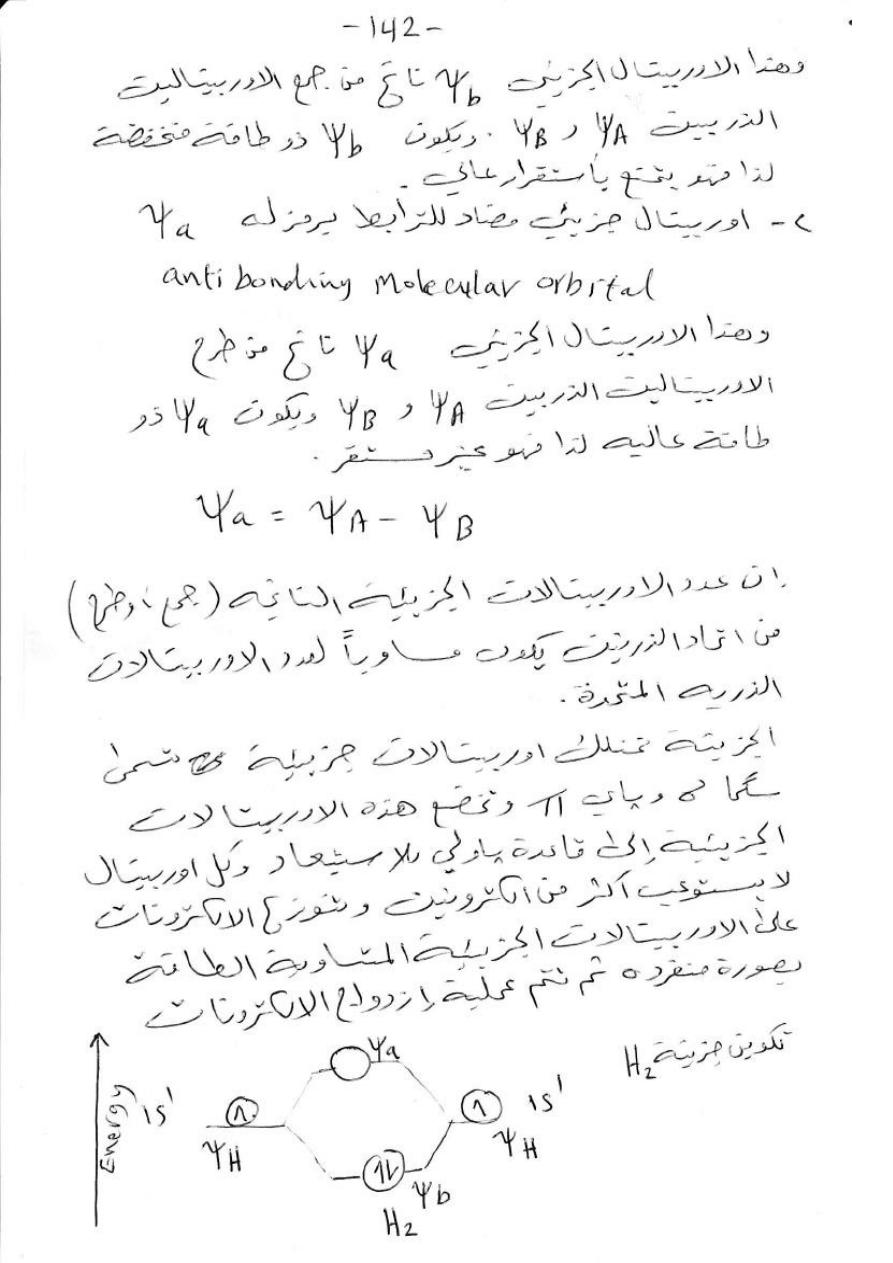 -142-
وهذا الاوربيتال الجزيئي Ψb ناتج من جمع الاوربيتاليت
الذريين ΨA و ΨB . ويكون Ψb ذو طاقة منخفضة
لذا فهو يتمتع بأستقرار عالي .
٢- اوربيتال جزيئي مضاد للترابط يرمز له Ψa
anti bonding Molecular orbital
وهذا الاوربيتال الجزيئي Ψa ناتج من طرح
الاوربيتاليت الذريين ΨA و ΨB ويكون Ψa ذو
طاقة عاليه لذا فهو غير مستقر .
Ψa = ΨA - ΨB
إن عدد الاوربيتالات الجزيئية الناتجه (جمع ، وطرح)
من اتحاد الذرتين يكون مساوياً لعدد الاوربيتالات
الذريه المتحدة .
الجزيئة تمتلك اوربيتالات جزيئية تسمى
سگما σ وپاي π وتخضع هذه الاوربيتالات
الجزيئية إلى قاعدة پاولي للاستبعاد وكل اوربيتال
لا يستوعب أكثر من الكترونين وتتوزع الالكترونات
على الاوربيتالات الجزيئية المتساوية الطاقة
بصورة منفرده ثم تتم عملية إزدواج الالكترونات
تكوين جزيئة H2
Energy
Ψa
1S¹
1S¹
ΨH
ΨH
Ψb
H2